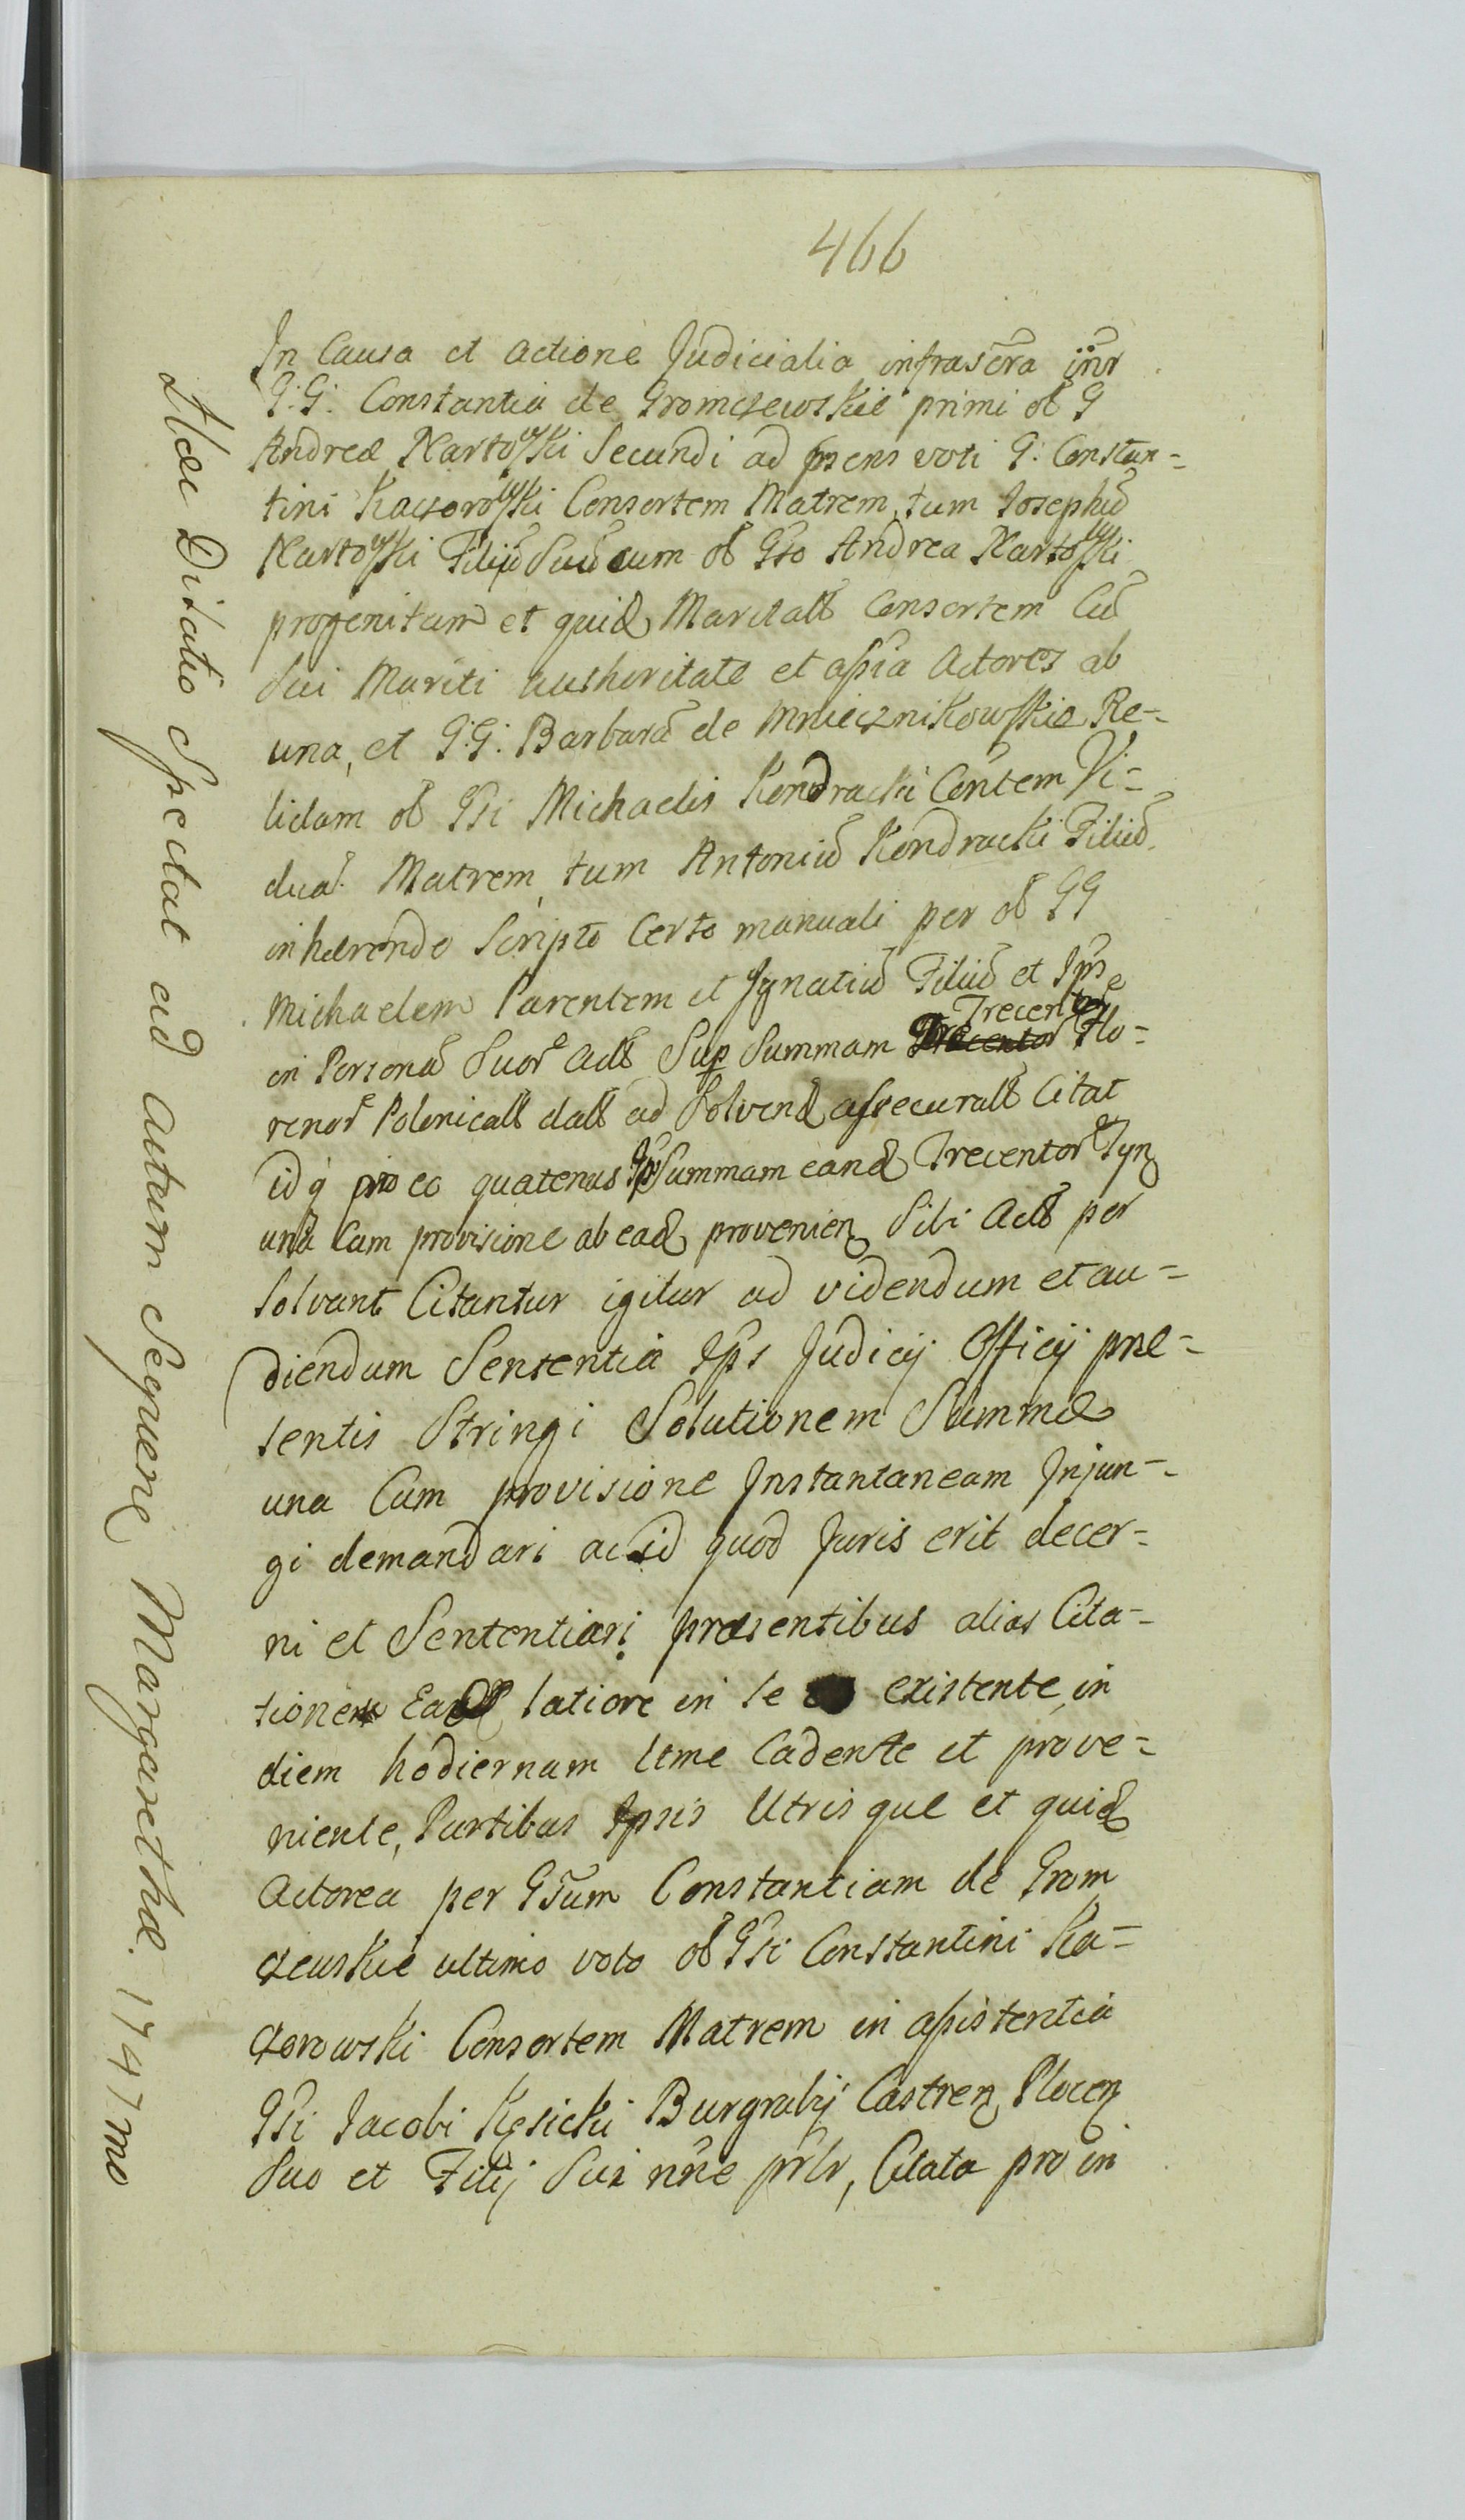 466
In Causa et actione Judicialia infrascra inr
G: G: Constantia de Gromczewskie primi ol G
Andreæ Nartowski Secundi ad psens voti G: Constan=
tini Kaczorowski Consortem Matrem, tum Josephũ
Nartowski Filiũ Suũ cum ol Gso Andrea Nartowski
progenitam et quid Maritalt Consortem Cũ
Sui Mariti authoritate et assia Actores ab
una, et G: G: Barbarã de Mniecznikowskie Re=
lictam ol Gsi Michaelis Kondracki Contem Vi=
dua. Matrem, tum Antoniũ Kondracki Filiũ
inhærendo Scripto Certo manuali per ol GG
Michaelem Parentem et Ignatiũ Filiũ et Ips
in Personã Suor Act Sup Summam Trecentor Flo=
renor Polonicalt dalt ad Solvend assecuralt Citat
idq pro eo quatenus Ipi Summam eand Trecentor Tyn
una Cum provisione ab ead provenien Sibi Act per
solvant Citantur igitur ad videndum et au=
diendum Sententia Ips Judicij Officij præ=
sentis Stringi Solutionem Summæ
una Cum provisione Instantaneam Injun=
gi demandari ac id quod Juris erit decer=
ni et Sententiari præsentibus alias Cita=
tione Ead latiore in se existente, in
diem hodiernam ltme Cadente et prove=
niente, Partibus Ipsis Utrisque et quid
Actorea per Gsum Constantiam de Grom
czewskie ultimo voto ol Gsi Constantini Ka=
czorowski Consortem Matrem in assistentia
Gsi Jacobi Kęsicki Burgrabij Castren Plocen
Suo et Filij Sui nne prlr, Citata pro in
Hæc Dilatio Spectat ad Actum Sequens Margarethæ. 1747mo